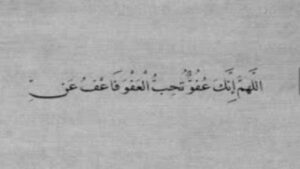 اللَّهُمَّ إِنَّكَ عُفُوٌّ تُحِبُّ الْعَفْوَ فَاعْفُ عَنِّ